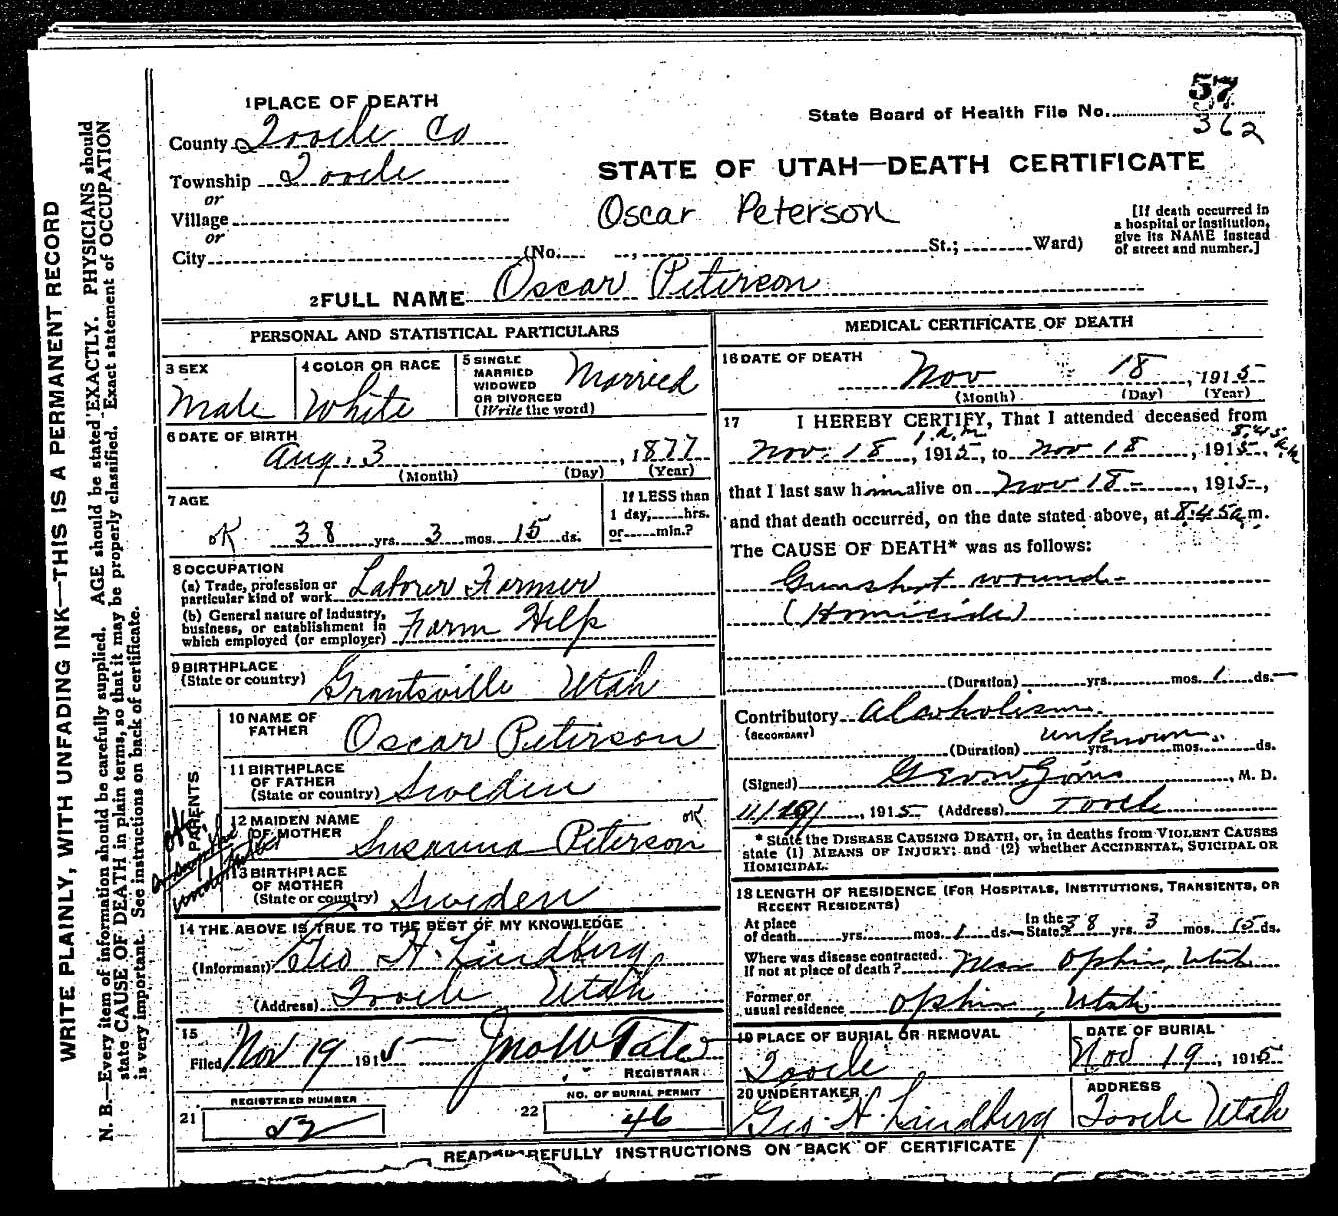 1 PLACE OF DEATH
County Tooele Co
Township Tooele
or
Village
or
City (No. , St.; Ward)
State Board of Health File No. 57
362
STATE OF UTAH—DEATH CERTIFICATE
Oscar Peterson
[If death occurred in
a hospital or institution,
give its NAME instead
of street and number.]
2 FULL NAME Oscar Peterson
WRITE PLAINLY, WITH UNFADING INK—THIS IS A PERMANENT RECORD
N. B.—Every item of information should be carefully supplied. AGE should be stated EXACTLY. PHYSICIANS should
state CAUSE OF DEATH in plain terms, so that it may be properly classified. Exact statement of OCCUPATION
is very important. See instructions on back of certificate.
PERSONAL AND STATISTICAL PARTICULARS
3 SEX
Male
4 COLOR OR RACE
White
5 SINGLE
MARRIED
WIDOWED
OR DIVORCED
(Write the word)
Married
6 DATE OF BIRTH
Aug. 3, 1877
(Month) (Day) (Year)
7 AGE
OK 38 yrs. 3 mos. 15 ds.
If LESS than
1 day, hrs.
or min.?
8 OCCUPATION
(a) Trade, profession or
particular kind of work Laborer Farmer
(b) General nature of industry,
business, or establishment in
which employed (or employer) Farm Help
9 BIRTHPLACE
(State or country) Grantsville Utah
PARENTS
10 NAME OF
FATHER Oscar Peterson
11 BIRTHPLACE
OF FATHER
(State or country) Sweden
12 MAIDEN NAME
OF MOTHER Susanna Peterson OK
13 BIRTHPLACE
OF MOTHER
(State or country) Sweden
14 THE ABOVE IS TRUE TO THE BEST OF MY KNOWLEDGE
(Informant) Geo H. Lindberg
(Address) Tooele Utah
15
Filed Nov 19 1915 Jno W Tate
REGISTRAR
21 REGISTERED NUMBER
52
22 NO. OF BURIAL PERMIT
46
MEDICAL CERTIFICATE OF DEATH
16 DATE OF DEATH
Nov 18, 1915
(Month) (Day) (Year)
17 I HEREBY CERTIFY, That I attended deceased from
1 a.m. 8:45 a.m.
Nov. 18, 1915, to Nov 18, 1915,
that I last saw him alive on Nov 18-, 1915-,
and that death occurred, on the date stated above, at 8:45 a.m.
The CAUSE OF DEATH* was as follows:
Gunshot wound-
(Homicide)
(Duration) yrs. mos. 1 ds.
Contributory Alcoholism
(SECONDARY)
(Duration) unknown yrs. mos. ds.
(Signed) , M. D.
11/19/, 1915 (Address) Tooele
* State the DISEASE CAUSING DEATH, or, in deaths from VIOLENT CAUSES
state (1) MEANS OF INJURY; and (2) whether ACCIDENTAL, SUICIDAL OR
HOMICIDAL.
18 LENGTH OF RESIDENCE (FOR HOSPITALS, INSTITUTIONS, TRANSIENTS, OR
RECENT RESIDENTS)
At place
of death yrs. mos. 1 ds. In the
State 38 yrs. 3 mos. 15 ds.
Where was disease contracted.
If not at place of death? Near Ophir, Utah
Former or
usual residence Ophir, Utah
19 PLACE OF BURIAL OR REMOVAL
Tooele
DATE OF BURIAL
Nov 19, 1915
20 UNDERTAKER
Geo H Lindberg
ADDRESS
Tooele Utah
READ CAREFULLY INSTRUCTIONS ON BACK OF CERTIFICATE